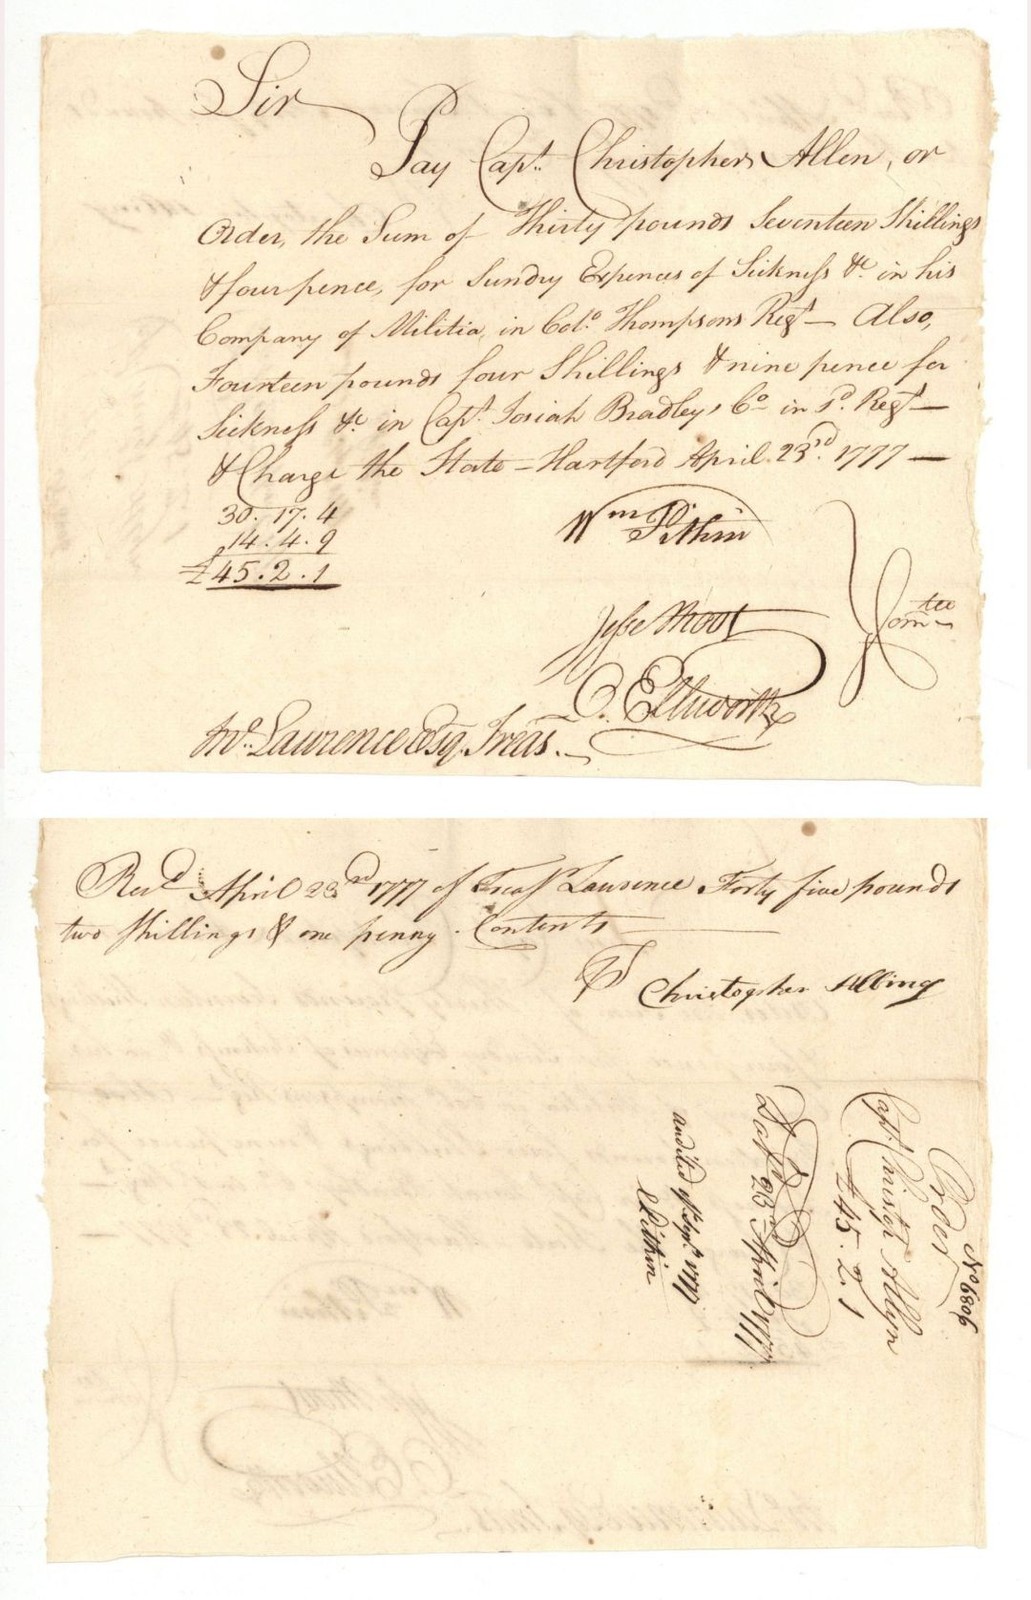 Sir
Pay Capt. Christopher Allen, or
Order, the Sum of Thirty pounds Seventeen Shillings
& four pence, for Sundry Expences of Sickness &c in his
Company of Militia, in Colo. Thompsons Regt — Also,
Fourteen pounds four Shillings & nine pence for
Sickness &c in Capt. Josiah Bradleys Co in sd. Regt —
& Charge the State — Hartford April 23rd. 1777 —
30. 17. 4
14. 4. 9
£45. 2. 1
Wm Pitkin
Jesse Root
Comtee
O. Ellsworth
Jno. Lawrence Esq. Treas.
Recd April 23rd 1777 of Treasr Lawrence Forty five pounds
two shillings & one penny Contents
Pr Christopher Alling
No 6806
Order
Capt. Christor Allyn
£45. 2. 1
Datd 23rd April 1777
audited Septr. 1777
Pitkin